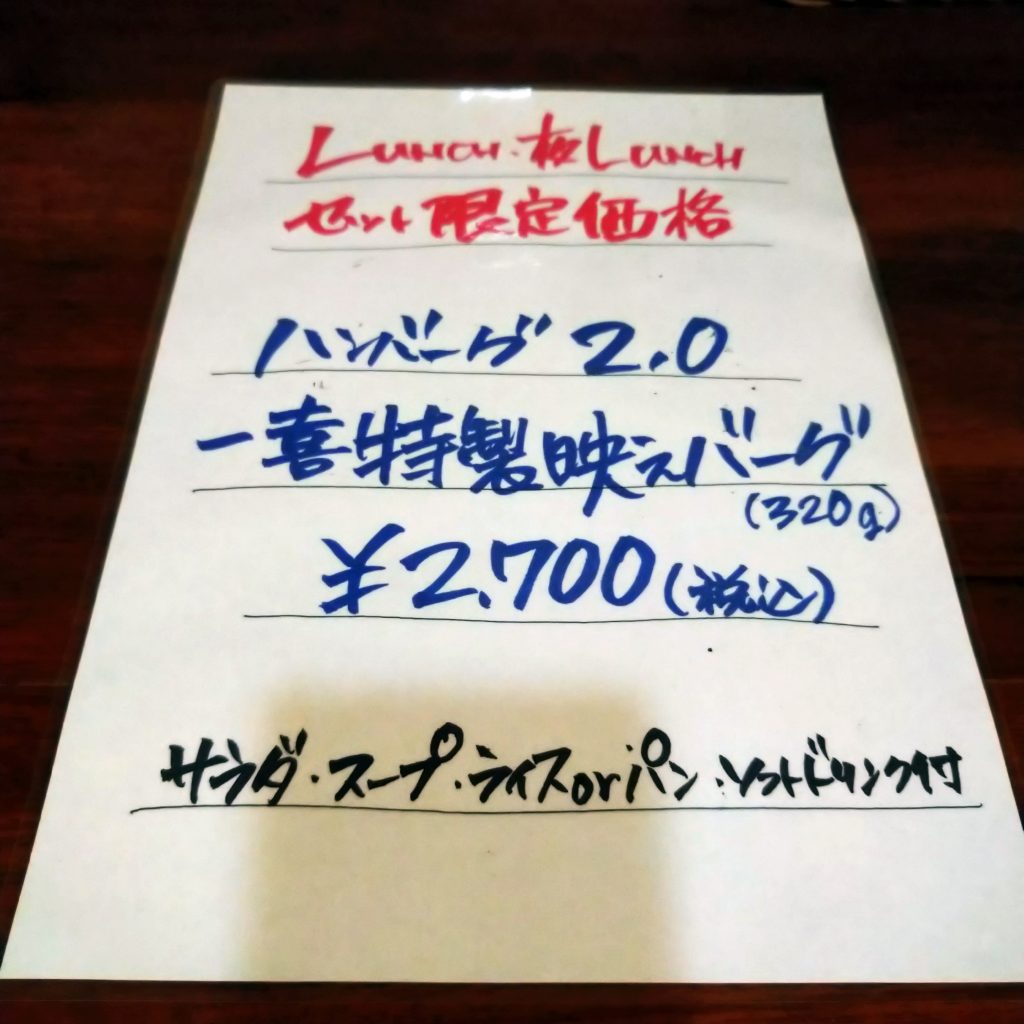 Lunch・夜Lunch
セット限定価格
ハンバーグ 2.0
一喜特製映えバーグ
(320g)
¥2,700(税込)
サラダ・スープ・ライスorパン・ソフトドリンク付